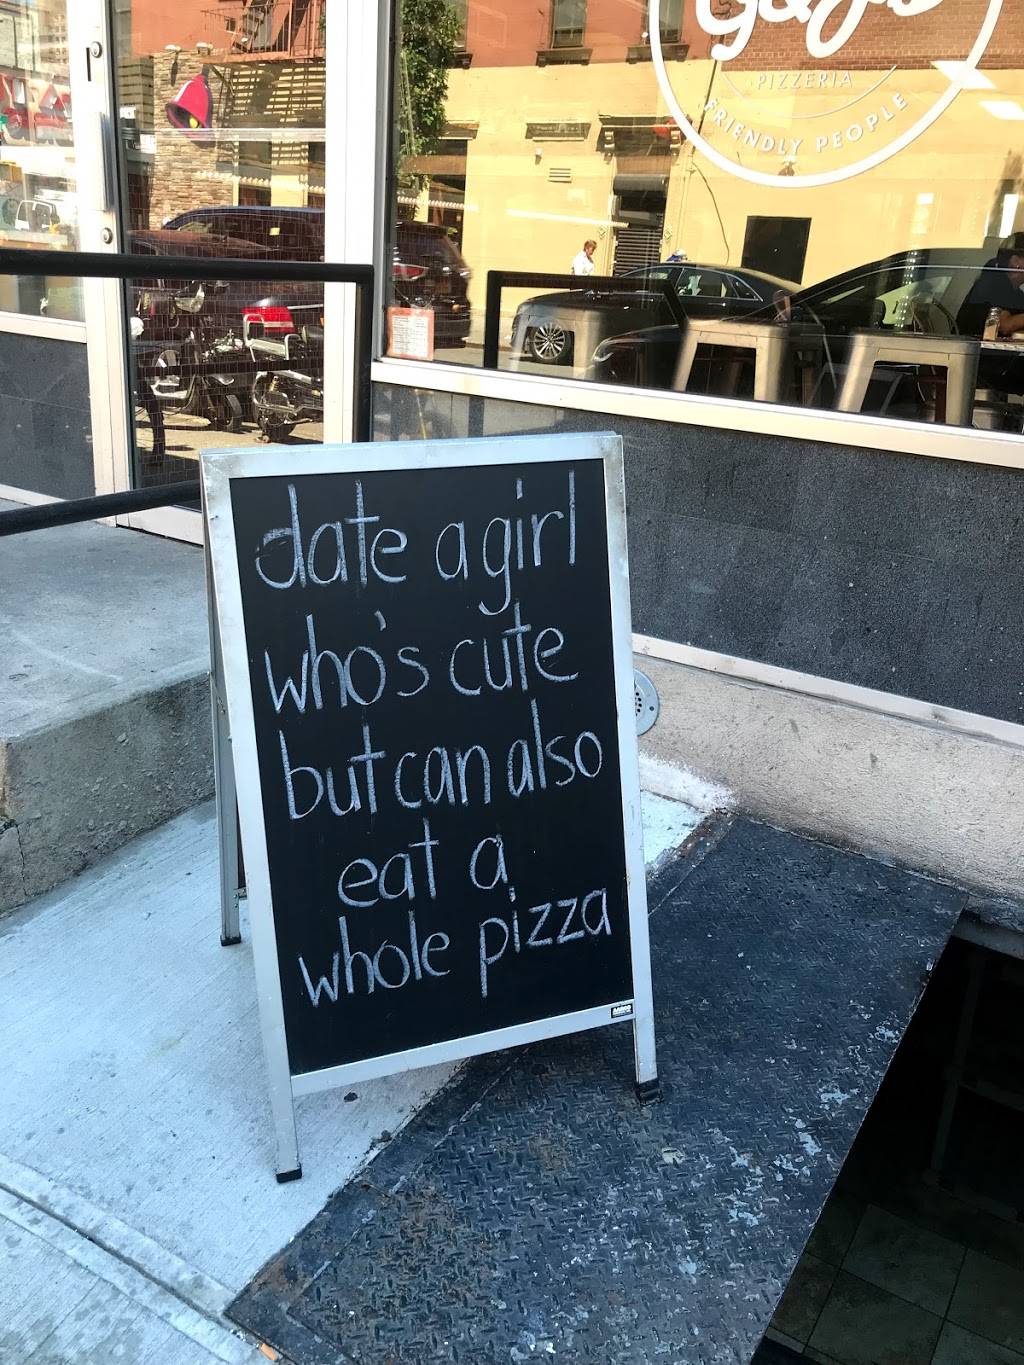 PIZZERIA
FRIENDLY PEOPLE
date a girl
who's cute
but can also
eat a
whole pizza